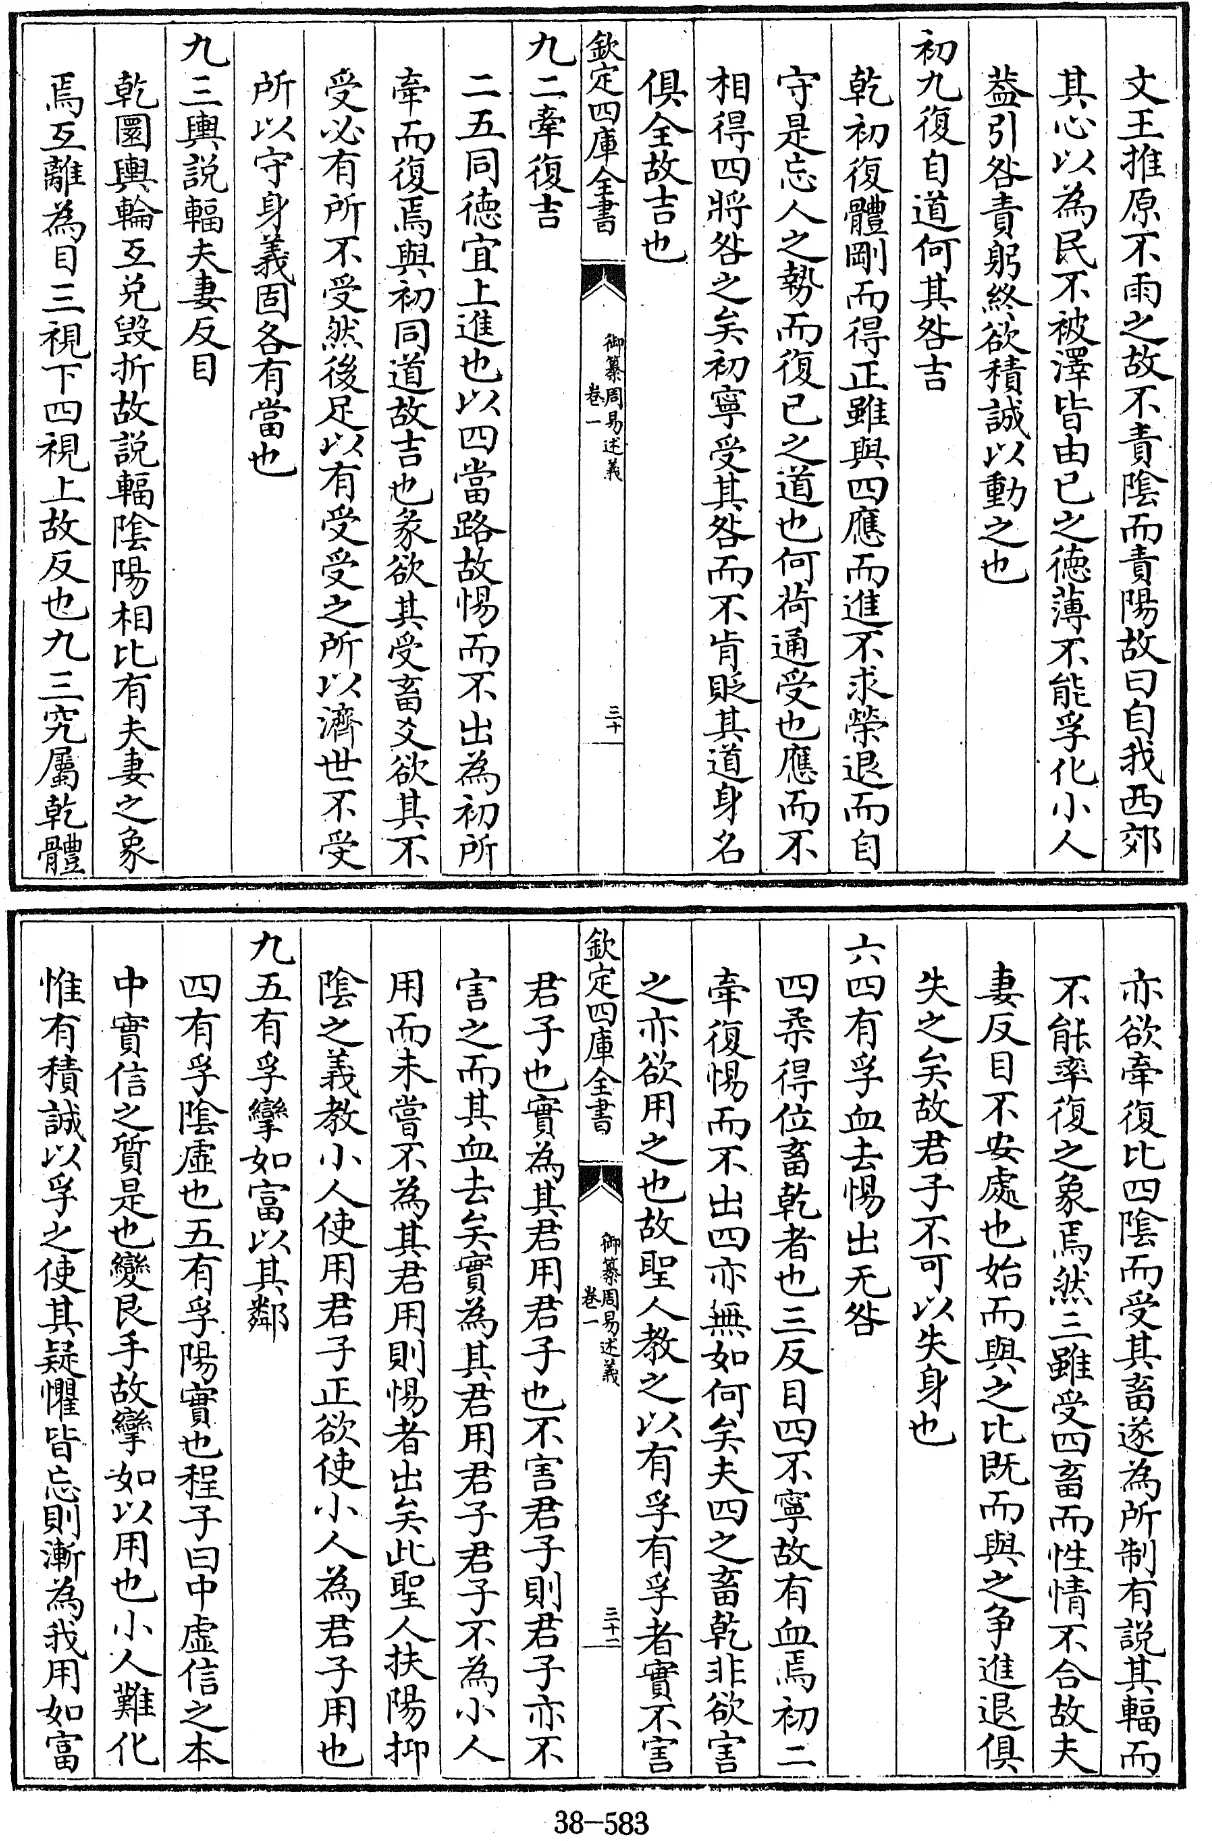 文王推原不雨之故不責陰而責陽故曰自我西郊
其心以為民不被澤皆由已之德薄不能孚化小人
葢引咎責躬終欲積誠以動之也
初九復自道何其咎吉
乾初復體剛而得正雖與四應而進不求榮退而自
守是忘人之勢而復已之道也何荷通受也應而不
相得四將咎之矣初寧受其咎而不肯貶其道身名
俱全故吉也
欽定四庫全書
御纂周易述義
卷一
三十
九二牽復吉
二五同德宜上進也以四當路故惕而不出為初所
牽而復焉與初同道故吉也彖欲其受畜爻欲其不
受必有所不受然後足以有受受之所以濟世不受
所以守身義固各有當也
九三輿説輻夫妻反目
乾圜輿輪互兑毀折故説輻陰陽相比有夫妻之象
焉互離為目三視下四視上故反也九三究屬乾體
亦欲牽復比四陰而受其畜遂為所制有説其輻而
不能率復之象焉然三雖受四畜而性情不合故夫
妻反目不安處也始而與之比既而與之争進退俱
失之矣故君子不可以失身也
六四有孚血去惕出无咎
四柔得位畜乾者也三反目四不寧故有血焉初二
牽復惕而不出四亦無如何矣夫四之畜乾非欲害
之亦欲用之也故聖人教之以有孚有孚者實不害
欽定四庫全書
御纂周易述義
卷一
三十二
君子也實為其君用君子也不害君子則君子亦不
害之而其血去矣實為其君用君子君子不為小人
用而未嘗不為其君用則惕者出矣此聖人扶陽抑
陰之義教小人使用君子正欲使小人為君子用也
九五有孚攣如富以其鄰
四有孚陰虛也五有孚陽實也程子曰中虛信之本
中實信之質是也變艮手故攣如以用也小人難化
惟有積誠以孚之使其疑懼皆忘則漸為我用如富
38-583